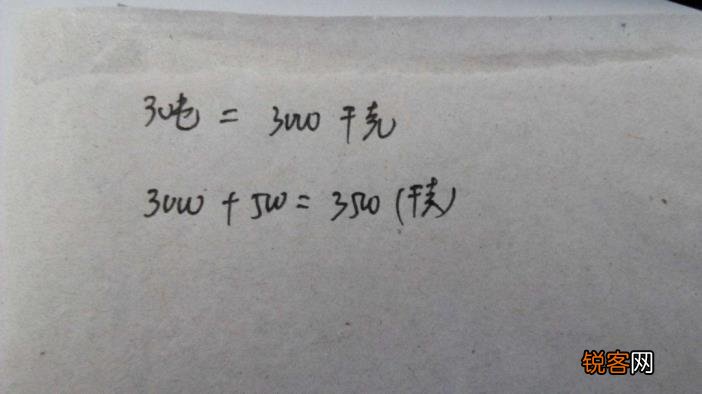 3吨 = 3000 千克
3000 + 500 = 3500 (千克)
锐客网